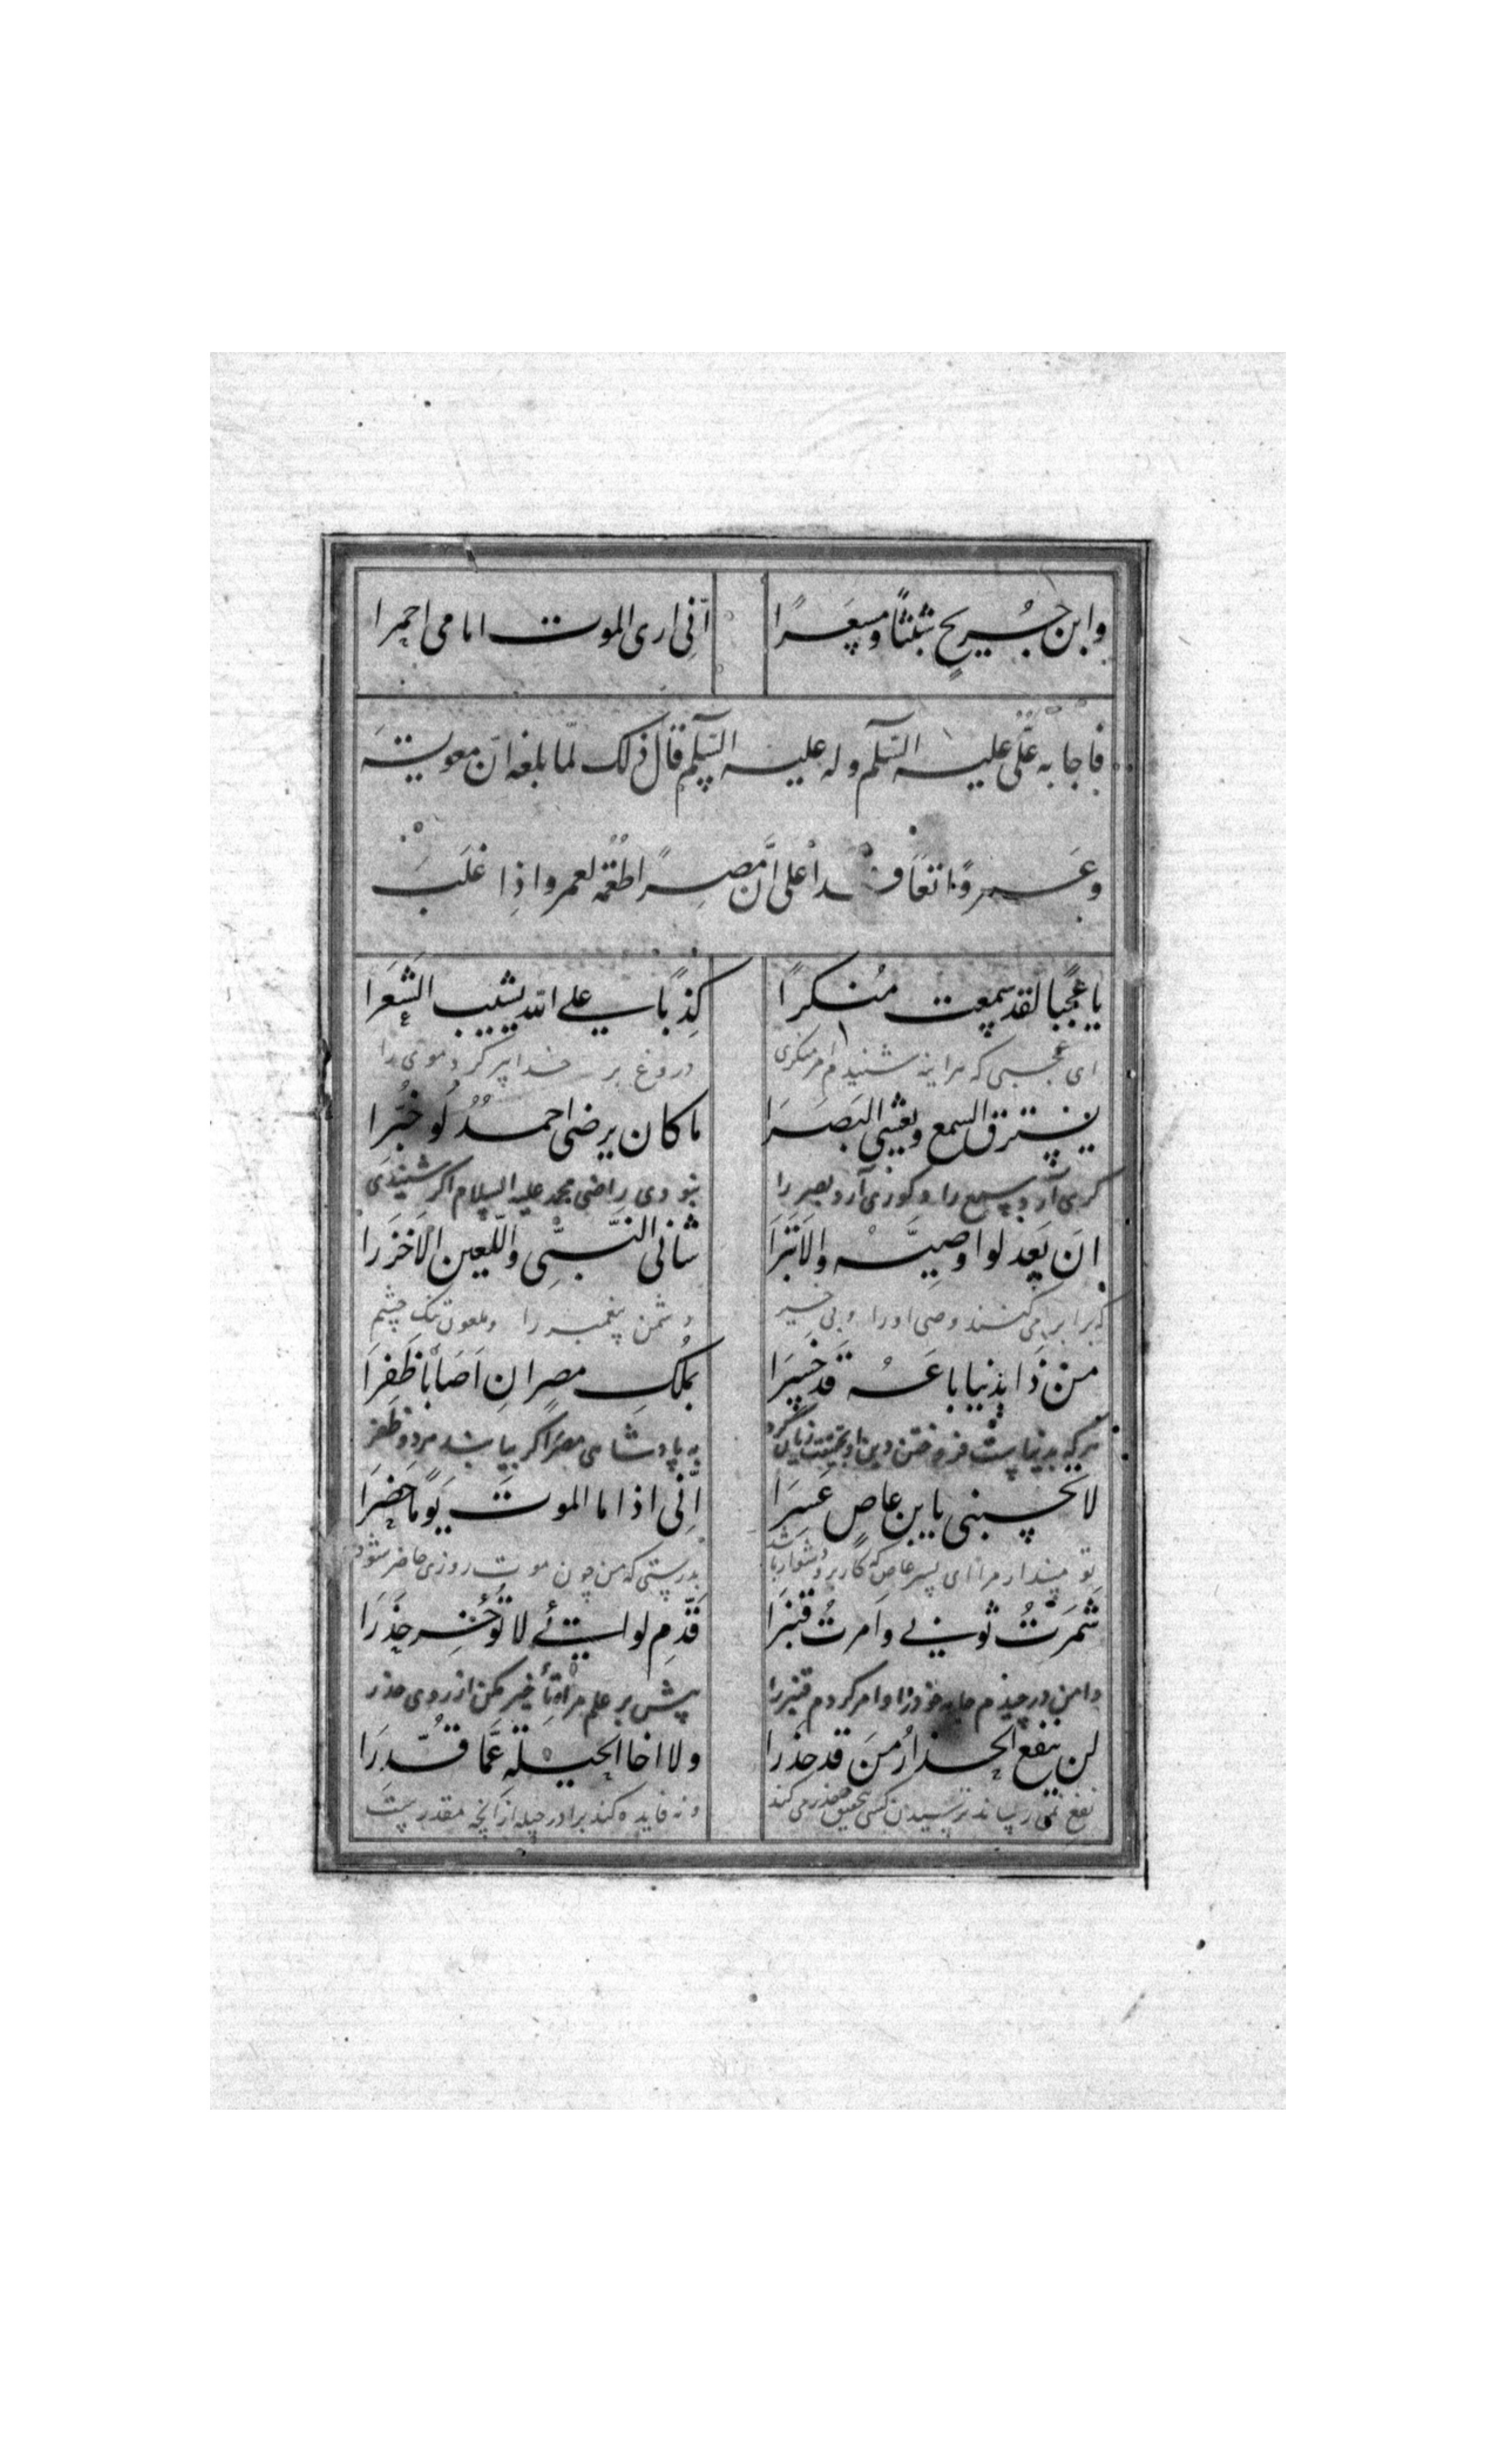 وابن جُريحٍ شَبَثًا ومِسعَرًا انّی اری الموت امامی احمرا
فاجابه علّی علیه السّلم وله علیه السّلم قال ذلک لمّا بلغه انّ معویة
وعَمروًا تعاقدا علی انّ مصرًا طعمةٌ لعمرو اذا غلبَ
یا عَجَبًا لقد سمعت مُنکرًا کذبًا علی الله یشیب الشَعَرا
ای عجبی که هراینه شنیدم امر منکری دروغ بر خدا پیر کرد موی را
یسترق السمع ویغشی البَصَرَا ما کان یرضی احمدٌ لَو خُبِّرا
کری آرد سمع را و کوری آرد بصر را نبودی راضی محمد علیه السلام اگر شنیدی
ان یَعدلوا وصیَّهُ والاَبتَرَا شانی النبَّی واللّعین الاَخزَرا
که برابر می کنند وصی او را و بی خیر دشمن پیغمبر را و ملعون تنک چشم
من ذا بدنیا باعَهُ قَد خَسِرَا بمُلکِ مصر ان اَصَابَا ظَفِرَا
هرکه بدنیاست فروختن دین او بتحقیق زیان کرد به پادشاهی مصر اگر بیابند مرد و ظفر
لا تحسبنی یا بن عاصٍ عَسِرَا اِنّی اذا ما الموتَ یَومًا حَضَرَا
تو مپندار مرا ای پسر عاص که کار برو دشوار باشد بدرستی که من چون موت روزی حاضر شود
شَمرَّتُ ثوبی وامرتُ قَنبَرَا قَدِّم لوائی لا تُؤخِّر حَذَرَا
دامن درچیدم جامه خود را و امر کردم قنبر را پیش بر علم مرا و تأخیر مکن از روی حذر
لن ینفع الحذارُ مَن قد حذرا ولا اخا الحیلة عَمَّا قُدِّرَا
نفع نمی رساند ترسیدن کسی بتحقیق حذر می کند و نه فایده کند برادر حیله از آنچه مقدرست